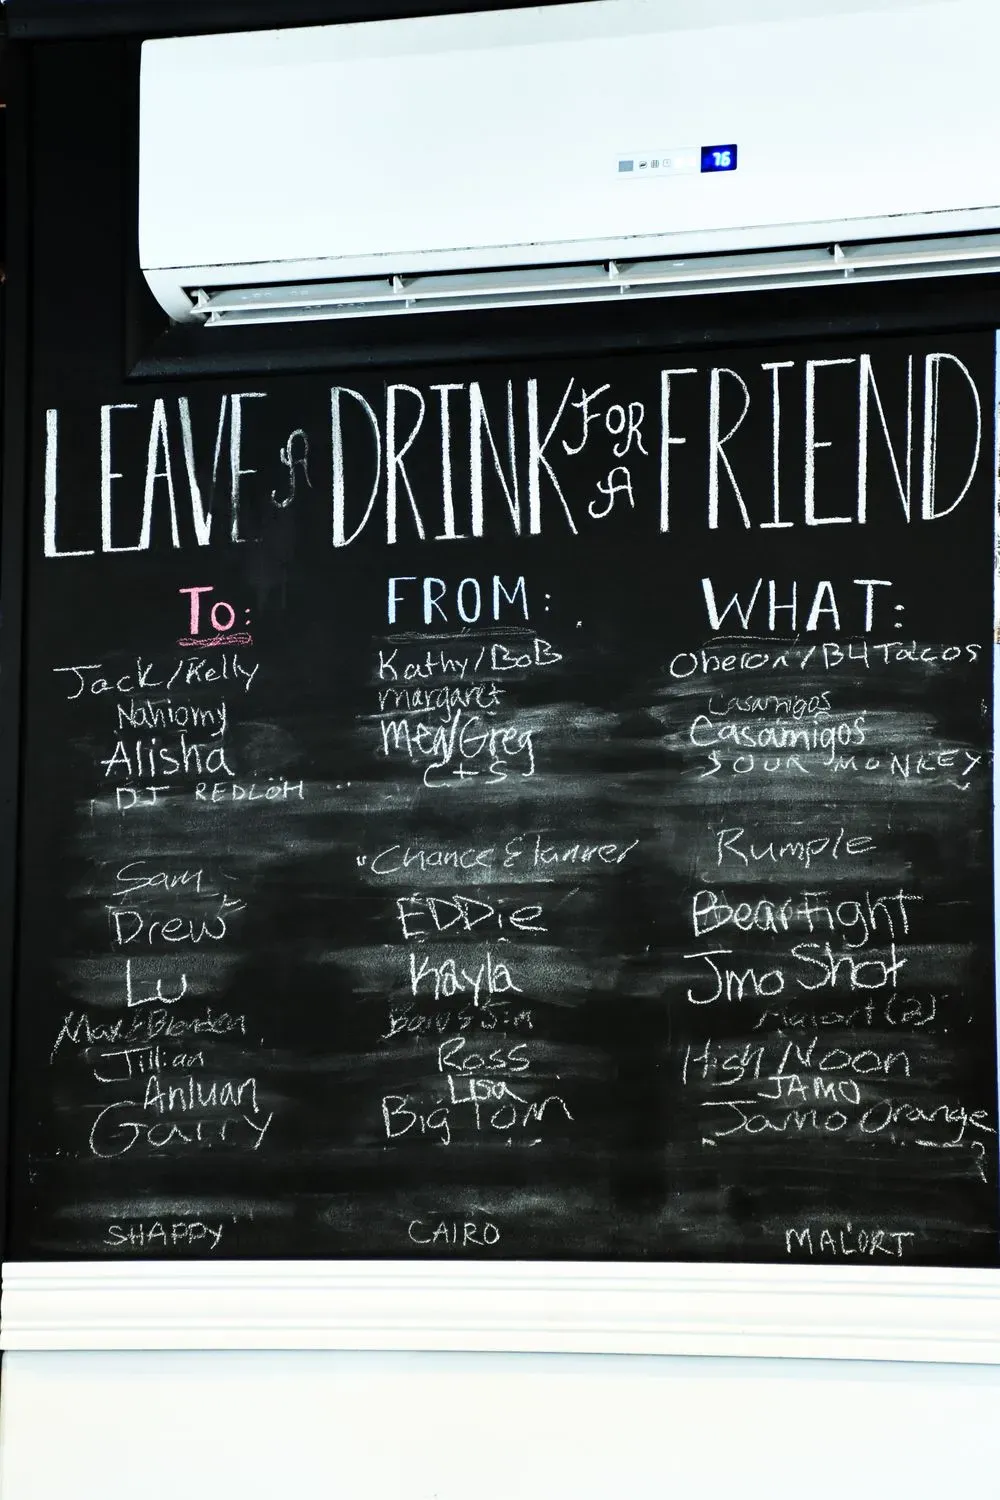 76
LEAVE A DRINK FOR A FRIEND
TO: FROM: WHAT:
Jack/Kelly Kathy/BoB Oberon/B4 Tacos
Nahiomy margaret Casamigos
Alisha Meg/Greg Casamigos
DJ REDLOH C+S SOUR MONKEY
Sam "Chance & Tanner Rumple
Drew EDDie Bear Fight
Lu Kayla Jmo Shot
Jim Malort (2)
Jillian Ross High Noon
Anluan Lisa JAMO
Garry Big Tom Jamo Orange
SHAPPY CAIRO MALORT